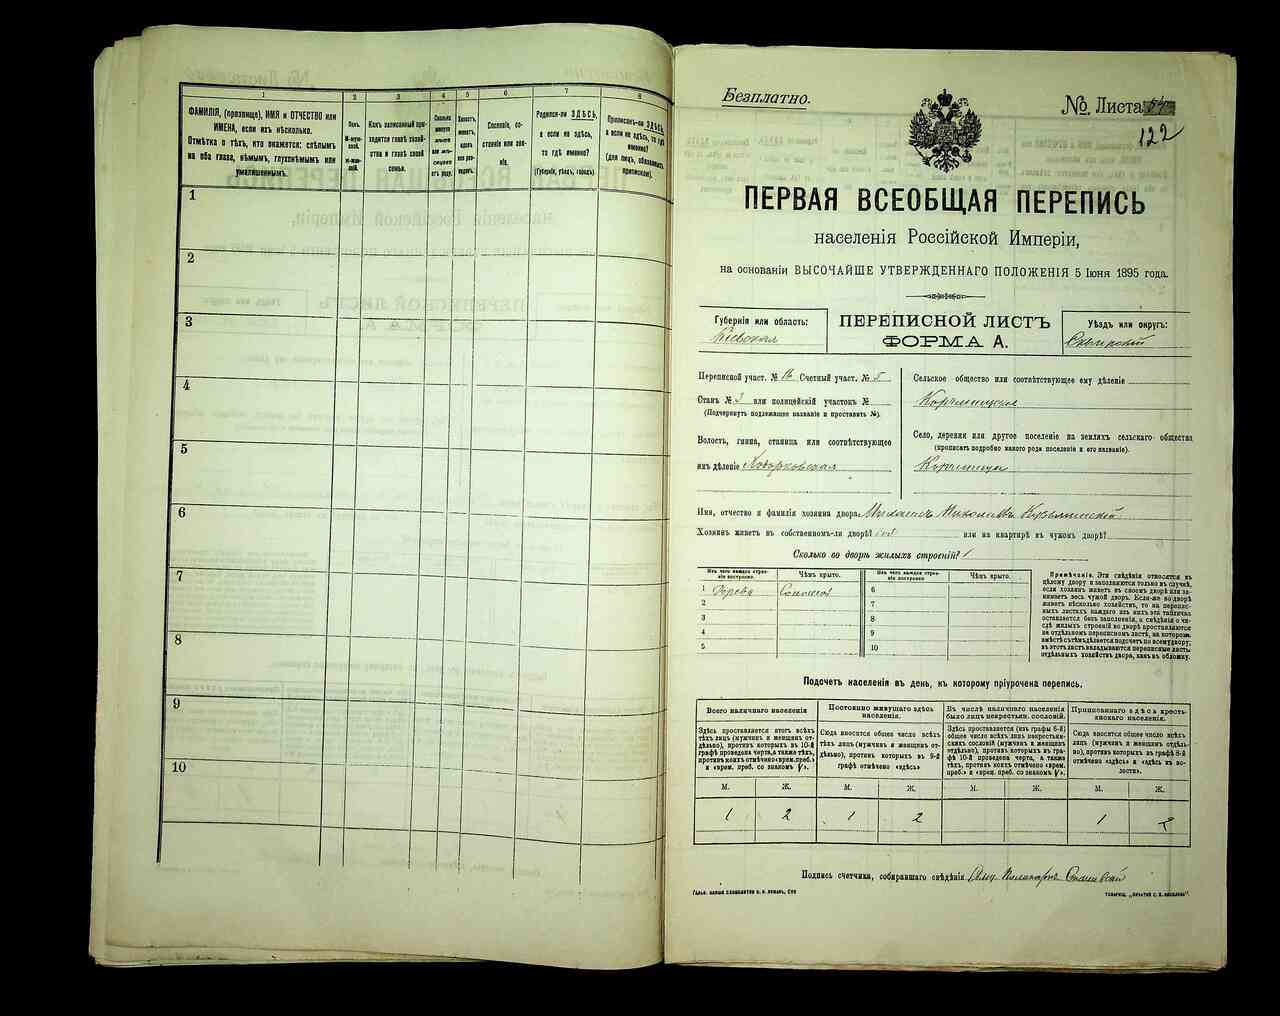 1 2 3 4 5 6 7 8
ФАМИЛІЯ, (прозвище), ИМЯ и ОТЧЕСТВО или
ИМЕНА, если ихъ нѣсколько.
Отмѣтка о тѣхъ, кто окажется: слѣпымъ
на оба глаза, нѣмымъ, глухонѣмымъ или
умалишеннымъ.
Полъ.
Какъ записанный приходится главѣ хозяйства и главѣ своей семьи.
Сословіе, состояніе или званіе.
Родился-ли ЗДѢСЬ,
а если не здѣсь,
то гдѣ именно?
(Губернія, уѣздъ, городъ).
Приписанъ-ли ЗДѢСЬ,
а если не здѣсь, то гдѣ
именно?
(для лицъ, обязанныхъ
припиской).
1
2
3
4
5
6
7
8
9
10
Безплатно.
№ Листа 54
122
ПЕРВАЯ ВСЕОБЩАЯ ПЕРЕПИСЬ
населенія Россійской Имперіи,
на основаніи ВЫСОЧАЙШЕ УТВЕРЖДЕННАГО ПОЛОЖЕНІЯ 5 Іюня 1895 года.
Губернія или область:
Кіевская
ПЕРЕПИСНОЙ ЛИСТЪ
ФОРМА А.
Уѣздъ или округъ:
Сквирскій
Переписной участ. № 16 Счетный участ. № 5
Станъ № 3 или полицейскій участокъ №
(Подчеркнуть подлежащее названіе и проставить №).
Волость, гмина, станица или соотвѣтствующее
имъ дѣленіе Ходорковская
Сельское общество или соотвѣтствующее ему дѣленіе
Село, деревня или другое поселеніе на земляхъ сельскаго общества
(прописать подробно какого рода поселеніе и его названіе).
Имя, отчество и фамилія хозяина двора:
Хозяинъ живетъ въ собственномъ-ли дворѣ? или на квартирѣ въ чужомъ дворѣ?
Сколько во дворѣ жилыхъ строеній? 1
Изъ чего каждое строеніе построено. Чѣмъ крыто. Изъ чего каждое строеніе построено. Чѣмъ крыто.
1 Дерева Соломой 6
2 7
3 8
4 9
5 10
Примѣчаніе. Эти свѣдѣнія относятся къ
цѣлому двору и заполняются только въ случаѣ,
если хозяинъ живетъ въ своемъ дворѣ или занимаетъ весь чужой дворъ. Если-же во дворѣ
живетъ нѣсколько хозяйствъ, то на переписныхъ листахъ каждаго изъ нихъ эта табличка
оставляется безъ заполненія, а свѣдѣнія о числѣ жилыхъ строеній во дворѣ проставляются
на отдѣльномъ переписномъ листѣ, на которомъ
вмѣстѣ съ тѣмъ дѣлается подсчетъ по всему двору;
въ этотъ листъ вкладываются переписные листы
отдѣльныхъ хозяйствъ двора, какъ въ обложку.
Подсчетъ населенія въ день, къ которому пріурочена перепись.
Всего наличнаго населенія
Здѣсь проставляется итогъ всѣхъ
тѣхъ лицъ (мужчинъ и женщинъ отдѣльно), противъ которыхъ въ 10-й
графѣ проведена черта, а также тѣхъ,
противъ коихъ отмѣчено «врем. преб.»
и «врем. преб. со знакомъ V».
Постоянно живущаго здѣсь
населенія.
Сюда вносится общее число всѣхъ
тѣхъ лицъ (мужчинъ и женщинъ отдѣльно), противъ которыхъ въ 9-й
графѣ отмѣчено «здѣсь»
Въ числѣ наличнаго населенія
было лицъ некрестьян. сословій.
Здѣсь проставляется (изъ графы 6-й)
общее число всѣхъ лицъ некрестьянскихъ сословій (мужчинъ и женщинъ
отдѣльно), противъ которыхъ въ графѣ 10-й проведена черта, а также
тѣхъ, противъ коихъ отмѣчено «врем.
преб.» и «врем. преб. со знакомъ V».
Приписаннаго здѣсь крестьянскаго населенія.
Сюда вносится общее число всѣхъ
лицъ (мужчинъ и женщинъ отдѣльно), противъ которыхъ въ графѣ 8-й
отмѣчено «здѣсь» и «здѣсь въ волости».
М. Ж. М. Ж. М. Ж. М. Ж.
1 2 1 2 1 2
Подпись счетчика, собиравшаго свѣдѣнія